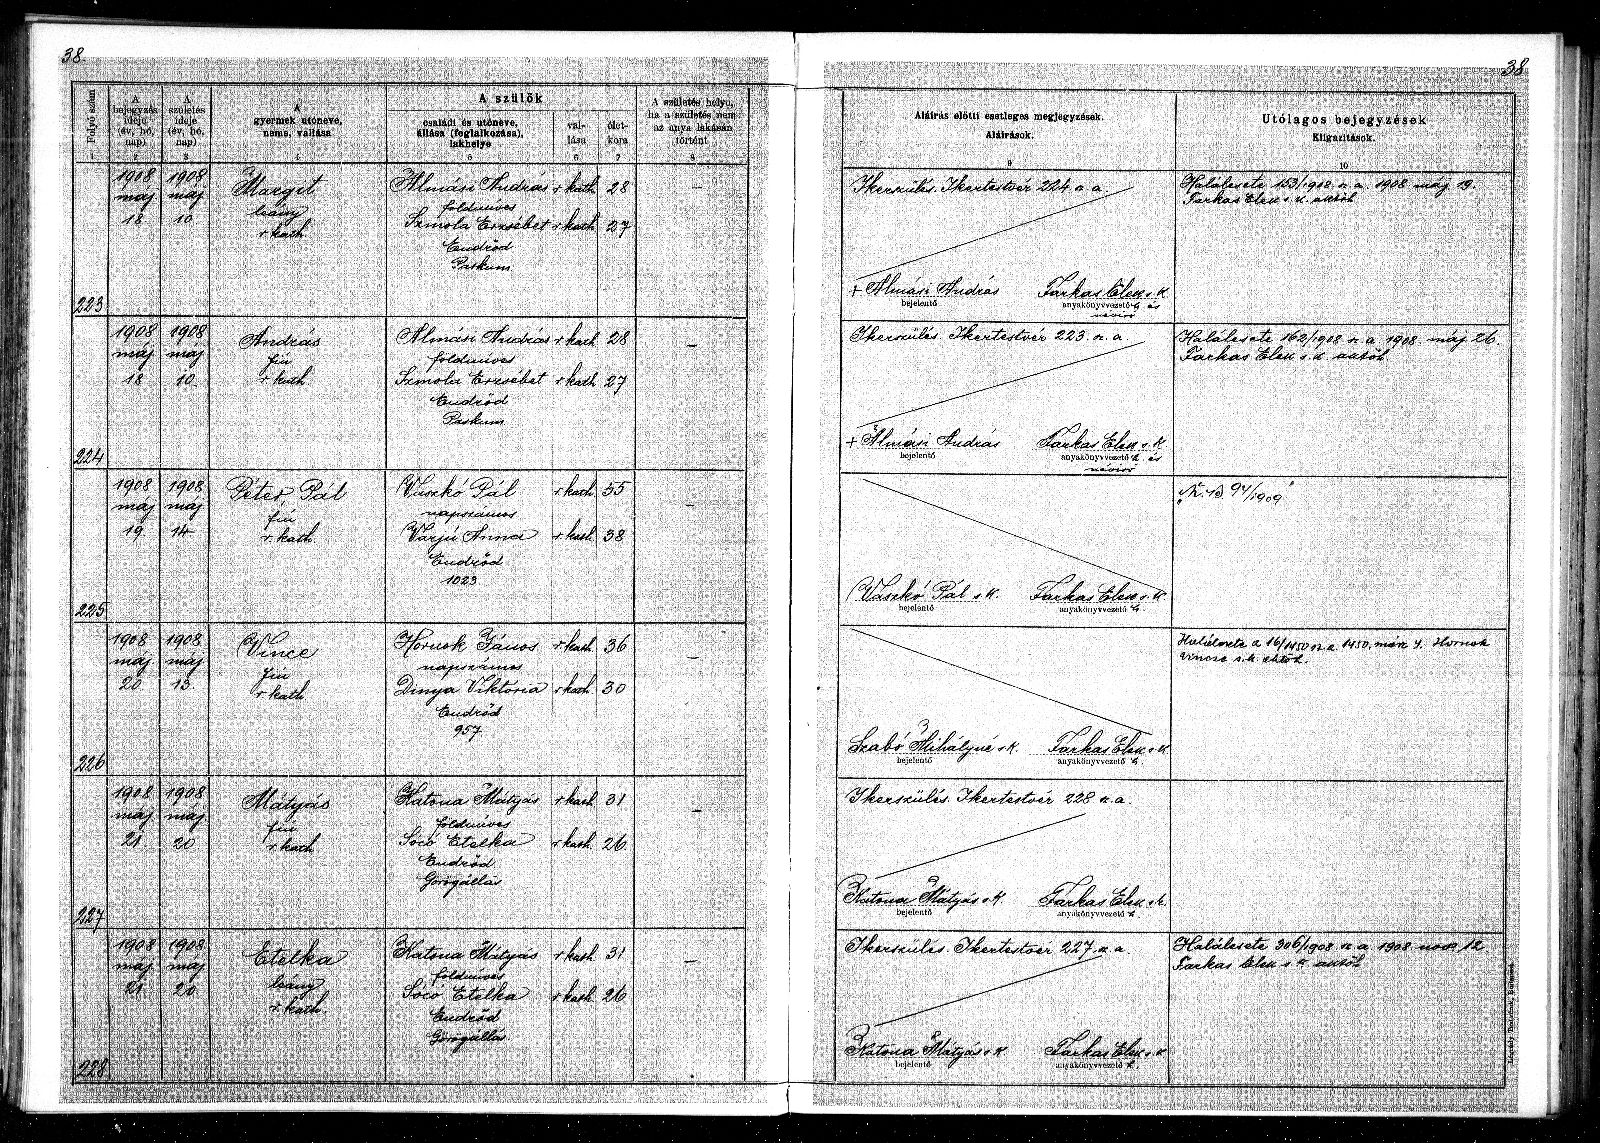 38.
Folyó szám
A bejegyzés ideje (év, hó, nap)
A születés ideje (év, hó, nap)
A gyermek utóneve, neme, vallása
A szülők
családi és utóneve, állása (foglalkozása), lakhelye
vallása
életkora
A születés helye, ha a születés nem az anya lakásán történt
1 2 3 4 5 6 7 8
223
1908 máj 18
1908 máj 10
Margit
leány
r kath
Almási András r kath 28
földmíves
Szmola Erzsébet r kath 27
Endrőd
Paskum
—
224
1908 máj 18
1908 máj 10
András
fiú
r kath
Almási András r kath 28
földmíves
Szmola Erzsébet r kath 27
Endrőd
Paskum
—
225
1908 máj 19
1908 máj 14
Péter Pál
fiú
r. kath
Vaszkó Pál r kath 55
napszámos
Varjú Anna r kath 38
Endrőd
1023
—
226
1908 máj 20
1908 máj 13
Vince
fiú
r kath
Hornok János r kath 36
napszámos
Dinya Viktória r kath 30
Endrőd
957.
—
227
1908 máj 21
1908 máj 20
Mátyás
fiú
r kath
Katona Mátyás r kath 31
földmíves
Sócó Etelka r kath 26
Endrőd
Görögállás
—
228
1908 máj 21
1908 máj 20
Etelka
leány
r. kath.
Katona Mátyás r kath 31
földmíves
Sócó Etelka r kath 26
Endrőd
Görögállás
—
38
Aláírás előtti esetleges megjegyzések.
Aláírások.
9
Utólagos bejegyzések
Kiigazítások.
10
Ikerszülés. Ikertestvér 224 a. a.
+ Almási András Farkas Elek s. k.
bejelentő anyakönyvvezető h és
névíró
Halálesete 153/1908 n. a. 1908 máj 19.
Farkas Elek s. k. aktöh
Ikerszülés. Ikertestvér 223. n. a
+ Almási András Farkas Elek s. k.
bejelentő anyakönyvvezető h és
névíró
Halálesete 162/1908 n. a. 1908 máj 26.
Farkas Elek s. k. aktöh
Vaszkó Pál s. k. Farkas Elek s. k.
bejelentő anyakönyvvezető h
94/1909
Szabó Mihályné s k. Farkas Elek s k
bejelentő anyakönyvvezető h
Halálesete a 16/1450 n. a. 1450. márc 4. Hornok
Vincze s. k. aktöh.
Ikerszülés. Ikertestvér 228 n. a.
Katona Mátyás s k Farkas Elek s. k.
bejelentő anyakönyvvezető h
Ikerszülés. Ikertestvér 227. n. a.
Katona Mátyás s k Farkas Elek s. k
bejelentő anyakönyvvezető h.
Halálesete 306/1908 n. a. 1908 nov. 12
Farkas Elek s. k. aktöh